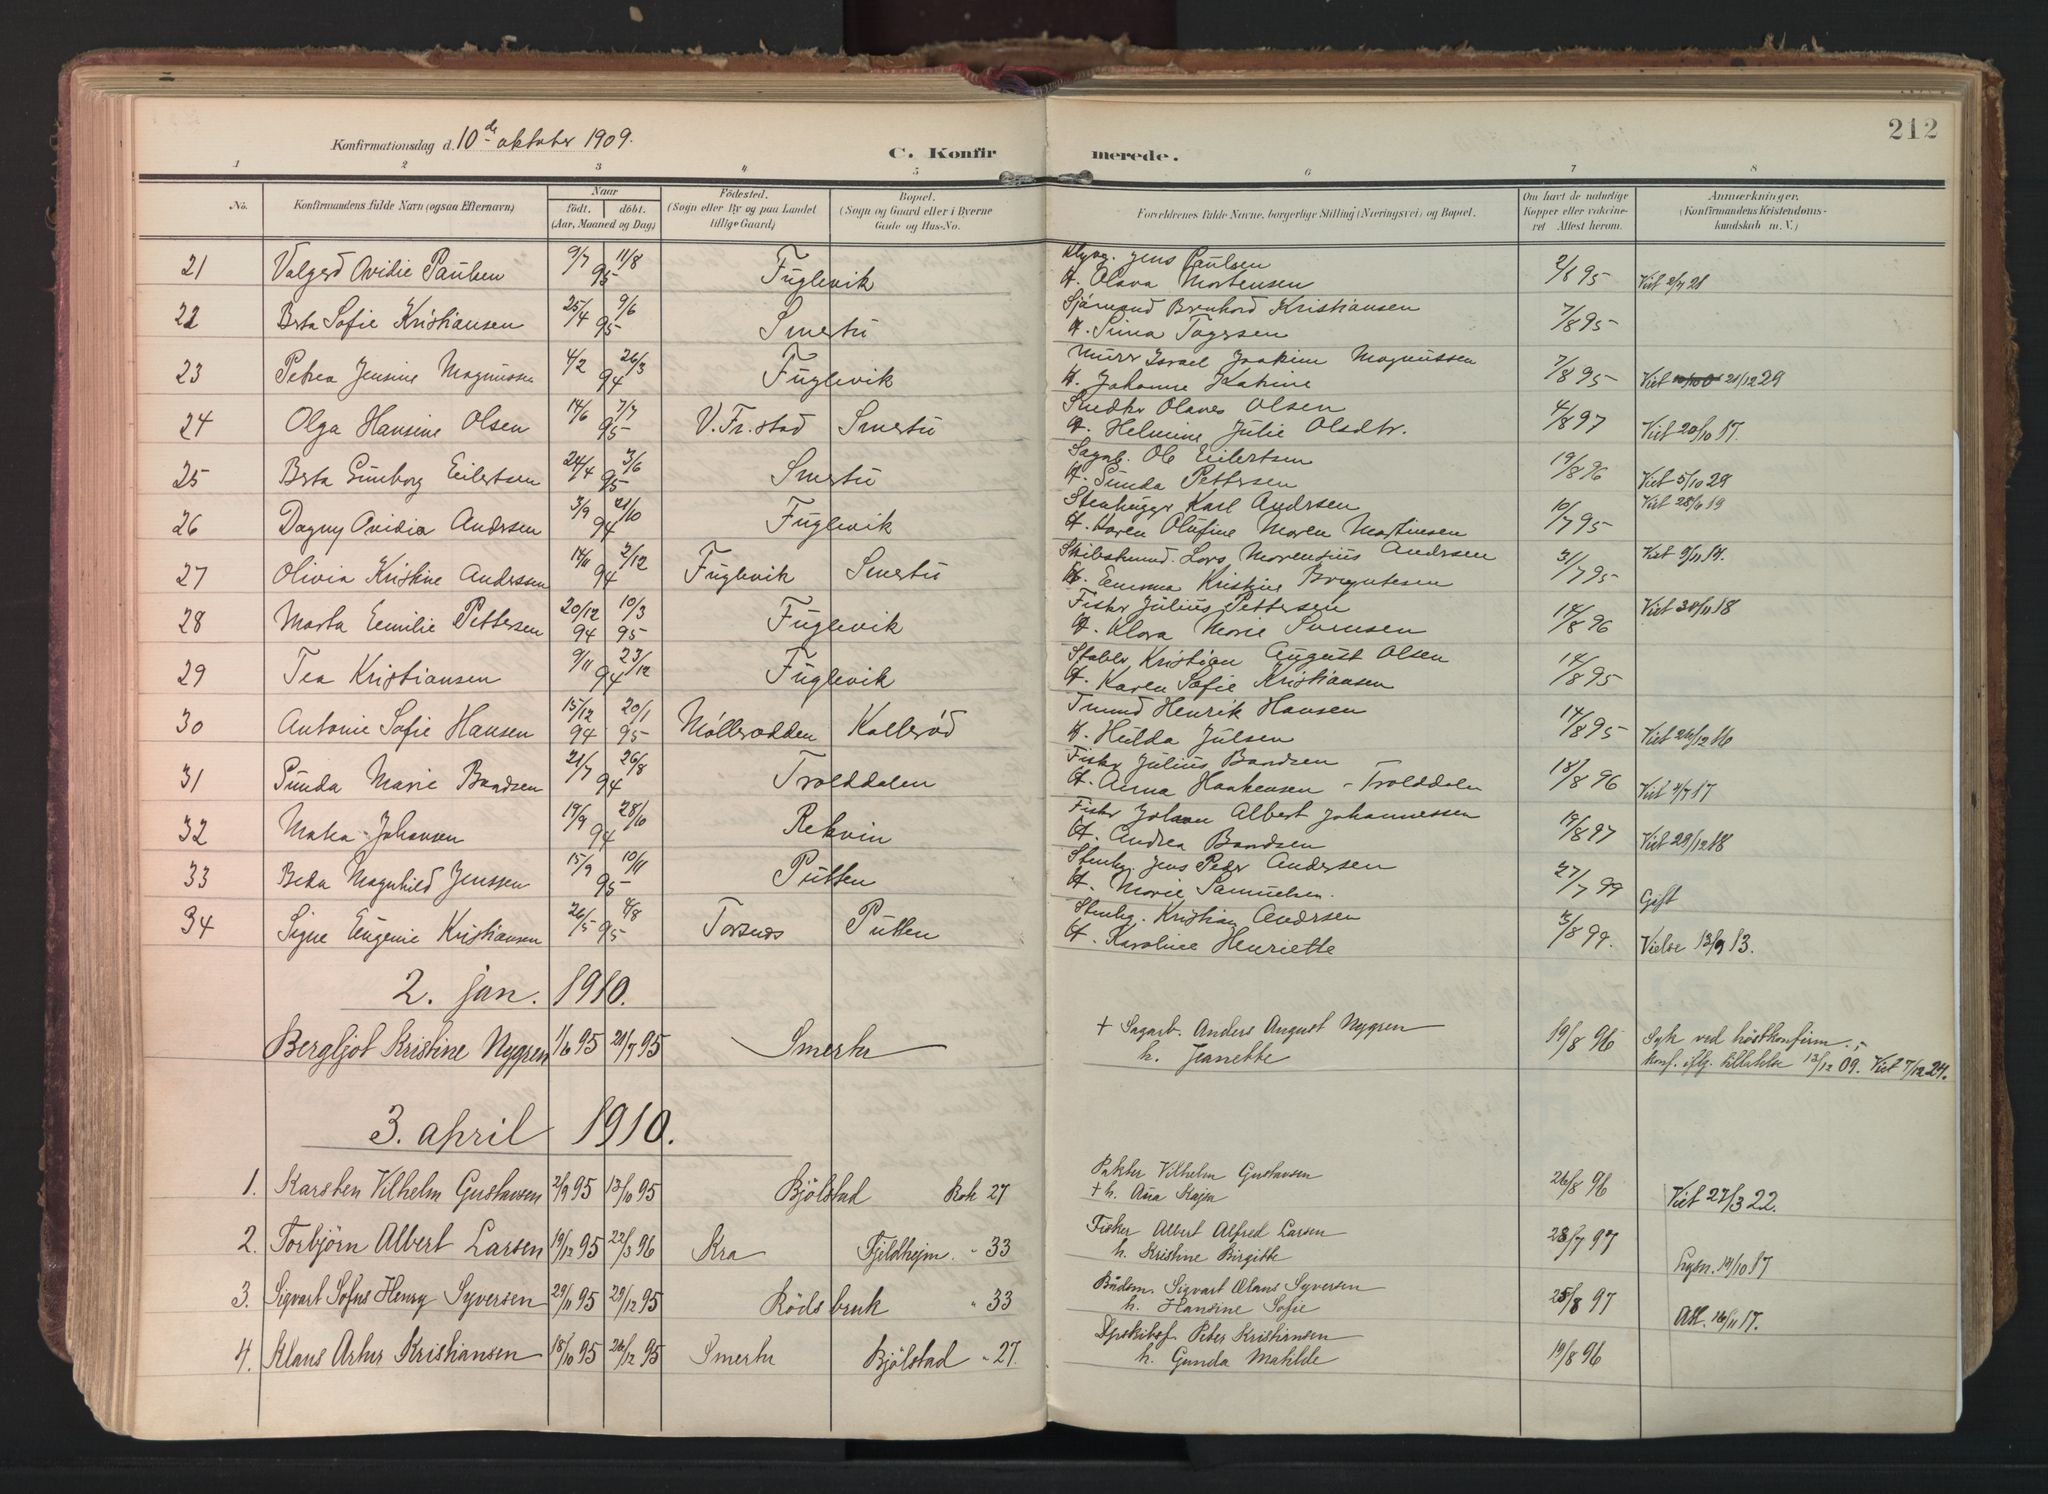 212
Konfirmationsdag d. 10de oktober 1909.
C. Konfirmerede.
1 2 3 4 5 6 7 8
No. Konfirmandens fulde Navn (ogsaa Efternavn) Naar födt. döbt. (Aar, Maaned og Dag) Födested. (Sogn eller By og paa Landet tillige Gaard) Bopæl. (Sogn og Gaard eller i Byerne Gade og Hus-No. Forældrenes fulde Navne, borgerlige Stilling (Næringsvei) og Bopæl. Om havt de naturlige Kopper eller vaccineret Attest herom. Anmærkninger. (Konfirmandens Kristendomskundskab m. V.)
21 Valgerd Ovidie Paulsen 9/7 11/8 95 Fuglevik Jens Paulsen 2/8 95
Olava Mortensen Viet 2/7 21
22 Berta Sofie Kristiansen 25/4 9/6 95 Smertu Sjömand Bernhard Kristiansen 7/8 95
23 Petrea Jensine Magnussen 4/2 26/3 94 Fuglevik Murer Israel Joakim Magnussen 7/8 95
Johanne Katrine Viet 21/12 29
24 Olga Hansine Olsen 14/6 7/7 95 V. Fr.stad Smertu Olaves Olsen 4/8 97
Helmine Julie Olsdtr. Viet 20/10 17.
25 Berta Gunborg Eilertsen 24/4 3/6 95 Smertu Sagarb. Ole Eilertsen 19/8 96
Gunda Pettersen Viet 5/10 29
26 Dagny Ovidia Andersen 3/9 21/10 94 Fuglevik Stenhugger Karl Andersen 10/7 95 Viet 28/6 19
Karen Olufine Maren Martinsen
27 Olivia Kristine Andersen 14/11 2/12 94 Fuglevik Smertu Lars Andersen 3/7 95 Viet 9/11 17.
Emma Kristine Bryntesen
28 Marta Emilie Pettersen 20/12 94 10/3 95 Fuglevik Fisker Julius Pettersen 14/8 96 Viet 30/11 18
Klara Marie Svensen
29 Tea Kristiansen 9/11 23/12 94 Fuglevik Stabler Kristian August Olsen 14/8 95
Karen Sofie Kristiansen
30 Antonie Sofie Hansen 15/12 94 20/1 95 Möllerodden Kalleröd Tmmd Henrik Hansen 14/8 95
Hulda Julsen Viet 26/12 16
31 Gunda Marie Bandsen 21/7 26/8 94 Trolddalen Fisker Julius Bandsen 18/8 96
Anna Haakensen - Trolddalen Viet 4/7 17
32 Matea Johansen 19/9 28/10 94 Rekvin Fisker Johan Albert Johannessen 19/8 97
Andrea Bandsen Viet 29/12 18
33 Beda Magnhild Jenssen 15/9 10/11 95 Putten Stenhg. Jens Peder Andersen 27/7 99
Marie Samuelsen. Gift
34 Signe Eugenie Kristiansen 26/5 4/8 95 Torsnes Putten Stenhg. Kristian Andersen 3/8 99.
Karoline Henriette Vielse 13/9 13.
2. jan. 1910.
Bergljot Kristine Nygren 1/6 95 21/7 95 Smertu + Sagarb. Anders August Nygren 19/8 96 Syk ved höstkonfirm.;
h. Jeanette konf. iflg. tilladelse 13/12 09. Viet 7/12 24.
3. april 1910.
1. Karsten Vilhelm Gustavsen 2/9 95 13/10 95 Bjölstad Rok 27 Pakter Vilhelm Gustavsen 26/8 96
+ h. Ana Kajsa Viet 27/3 22.
2. Torbjörn Albert Larsen 19/12 95 22/3 96 Kra Fjeldhejm " 33 Fisker Albert Alfred Larsen 28/7 97
h. Kristine Birgitte Lysn. 19/10 17
3. Sigvart Sofus Henry Syversen 29/11 95 29/12 95 Rödsbruk " 33 Sigvart Olaus Syversen 25/8 97
h. Hansine Sofie Att. 16/11 17.
4. Klaus Artur Kristiansen 18/10 95 26/12 95 Smertu Bjölstad " 27. Peter Kristiansen 19/8 96
h. Gunda Matilde